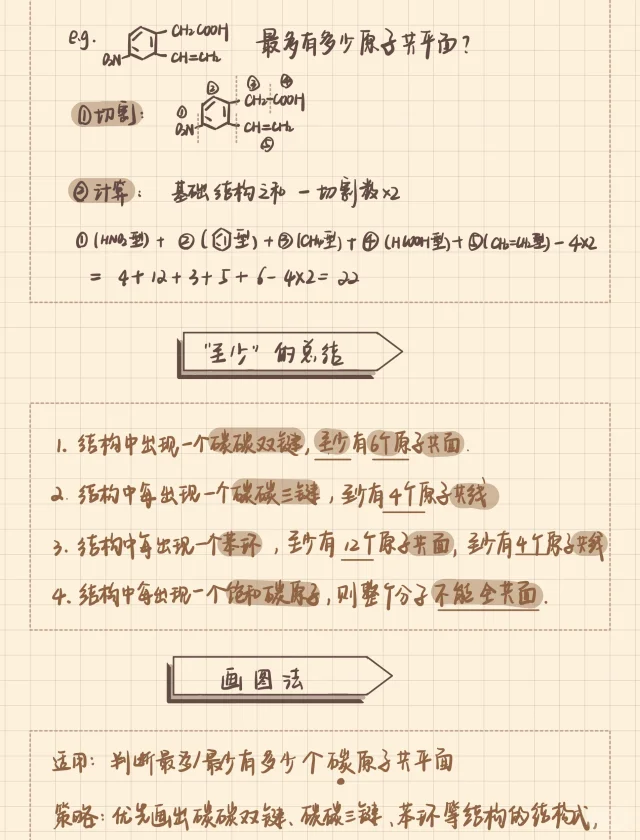 e.g. CH₂COOH
O₂N CH=CH₂ 最多有多少原子共平面?
①切割: ① ② ③ ④ CH₂-COOH
O₂N CH=CH₂
⑤
②计算: 基础结构之和 - 切割数×2
①(HNO₃型) + ②(型) + ③(CH₄型) + ④(HCOOH型) + ⑤(CH₂=CH₂型) - 4×2
= 4+12+3+5+6-4×2= 22
"至少"的总结
1. 结构中出现一个碳碳双键, 至少有6个原子共面.
2. 结构中每出现一个碳碳三键, 至少有4个原子共线
3. 结构中每出现一个苯环, 至少有12个原子共面, 至少有4个原子共线
4. 结构中每出现一个饱和碳原子, 则整个分子不能全共面.
画图法
适用: 判断最多/最少有多少个碳原子共平面
策略: 优先画出碳碳双键、碳碳三键、苯环等结构的结构式,